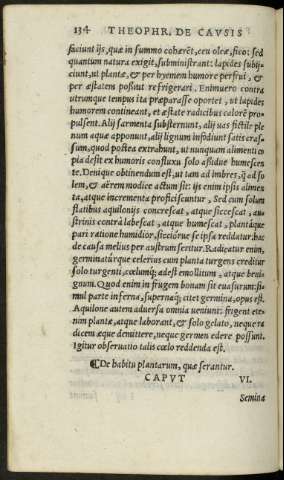 134 THEOPHR. DE CAVSIS
faciunt ijs, quæ in summo cohæret, ceu oleæ, fico: sed
quantum natura exigit, subministrant: lapides subij-
ciunt, ut plantæ, & per hyemem humore perfrui, &
per æstatem possint refrigerari. Enimuero contra
utrunque tempus ita præparasse oportet, ut lapides
humorem contineant, et æstate radicibus calorē pro-
pulsent. Alij sarmenta substernunt, alij uas fictile ple
num aquæ apponunt, alij lignum infodiunt satis cras-
sum, quod postea extrabunt, ut nunquam alimenti co
pia desit ex humoris confluxu solo assidue humescen
te. Denique obtinendum est, ut tam ad imbres, q̃ ad so
lem, & aërem modice actum sit: ijs enim ipsis alimen
ta, atque incrementa proficiscuntur. Sed cum solum
flatibus aquilonijs concrescat, atque siccescat, au-
strinis contrà labescat, atque humescat, plantáque
pari ratione humidior, sicciórue se ipsa reddatur: hac
de causa melius per austrum seritur. Radicatur enim,
germinatúrque celerius cum planta turgens creditur
solo turgenti, cœlumq; adest emollitum, atque beni-
gnum. Quod enim in frugem bonam sit euasurum: si-
mul parte inferna, supernaq; citet germina, opus est.
Aquilone autem aduersa omnia ueniunt: friget ete-
nim plantæ, atque laborant, & solo gelato, neque ra
dicem æque demittere, neque germen edere possunt.
Igitur obseruatio talis cœlo reddenda est.
¶De habitu plantarum, quæ serantur.
CAPVT VI.
Semina